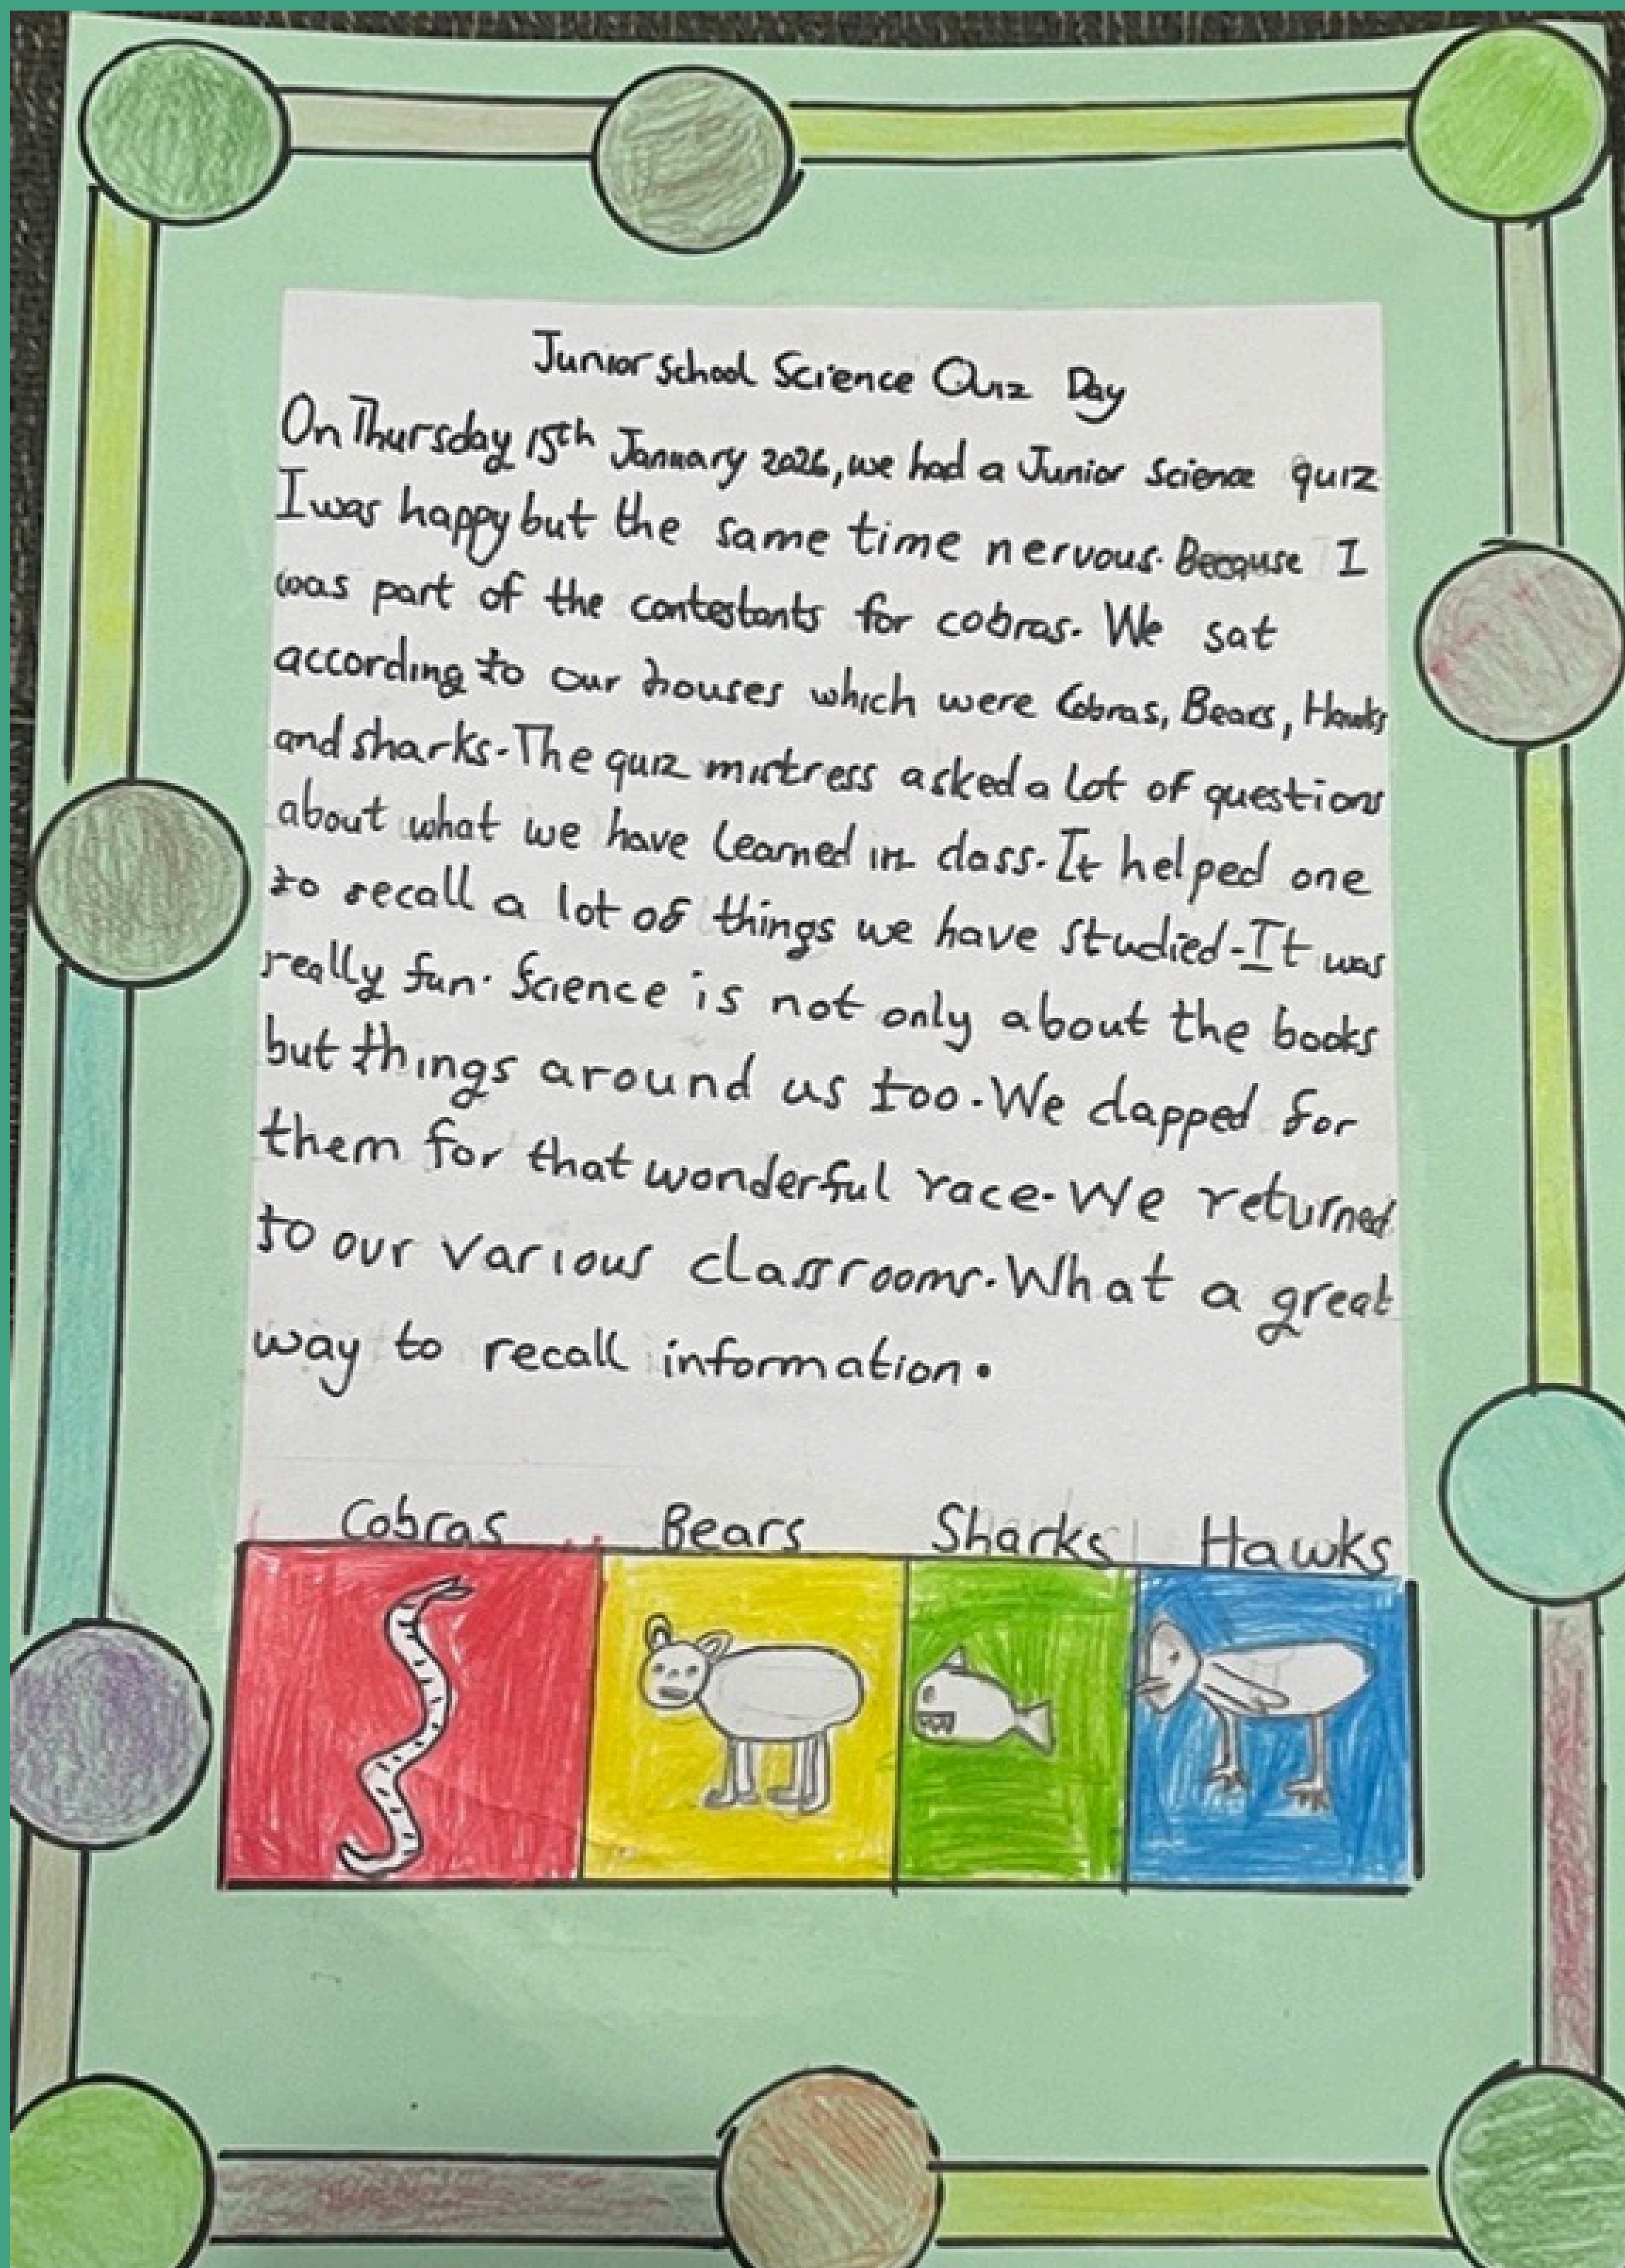 Junior school Science Quiz Day
On Thursday 15th January 2026, we had a Junior Science quiz
I was happy but the same time nervous. Because I
was part of the contestants for cobras. We sat
according to our houses which were Cobras, Bears, Hawks
and sharks. The quiz mistress asked a lot of questions
about what we have learned in class. It helped one
to recall a lot of things we have studied. It was
really fun. Science is not only about the books
but things around us too. We clapped for
them for that wonderful race. We returned
to our various classrooms. What a great
way to recall information.
Cobras Bears Sharks Hawks